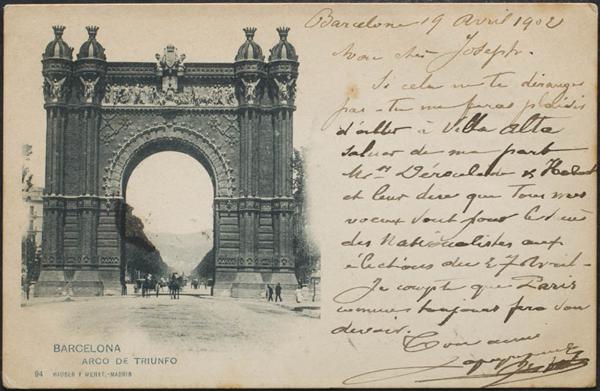 Barcelone 19 Avril 1902
Mon cher Joseph.
Si cela ne te dérange
pas - tu me feras plaisir
d'aller à Villa Alta
saluer de ma part
Mrs Déroulède &
et leur dire que Tous mes
voeux sont pour
des Nationalistes aux
élections du 27 Avril -
Je compte que Paris
comme toujours fera son
devoir.
Ton ami
BARCELONA
ARCO DE TRIUNFO
94 HAUSER Y MENET.-MADRID